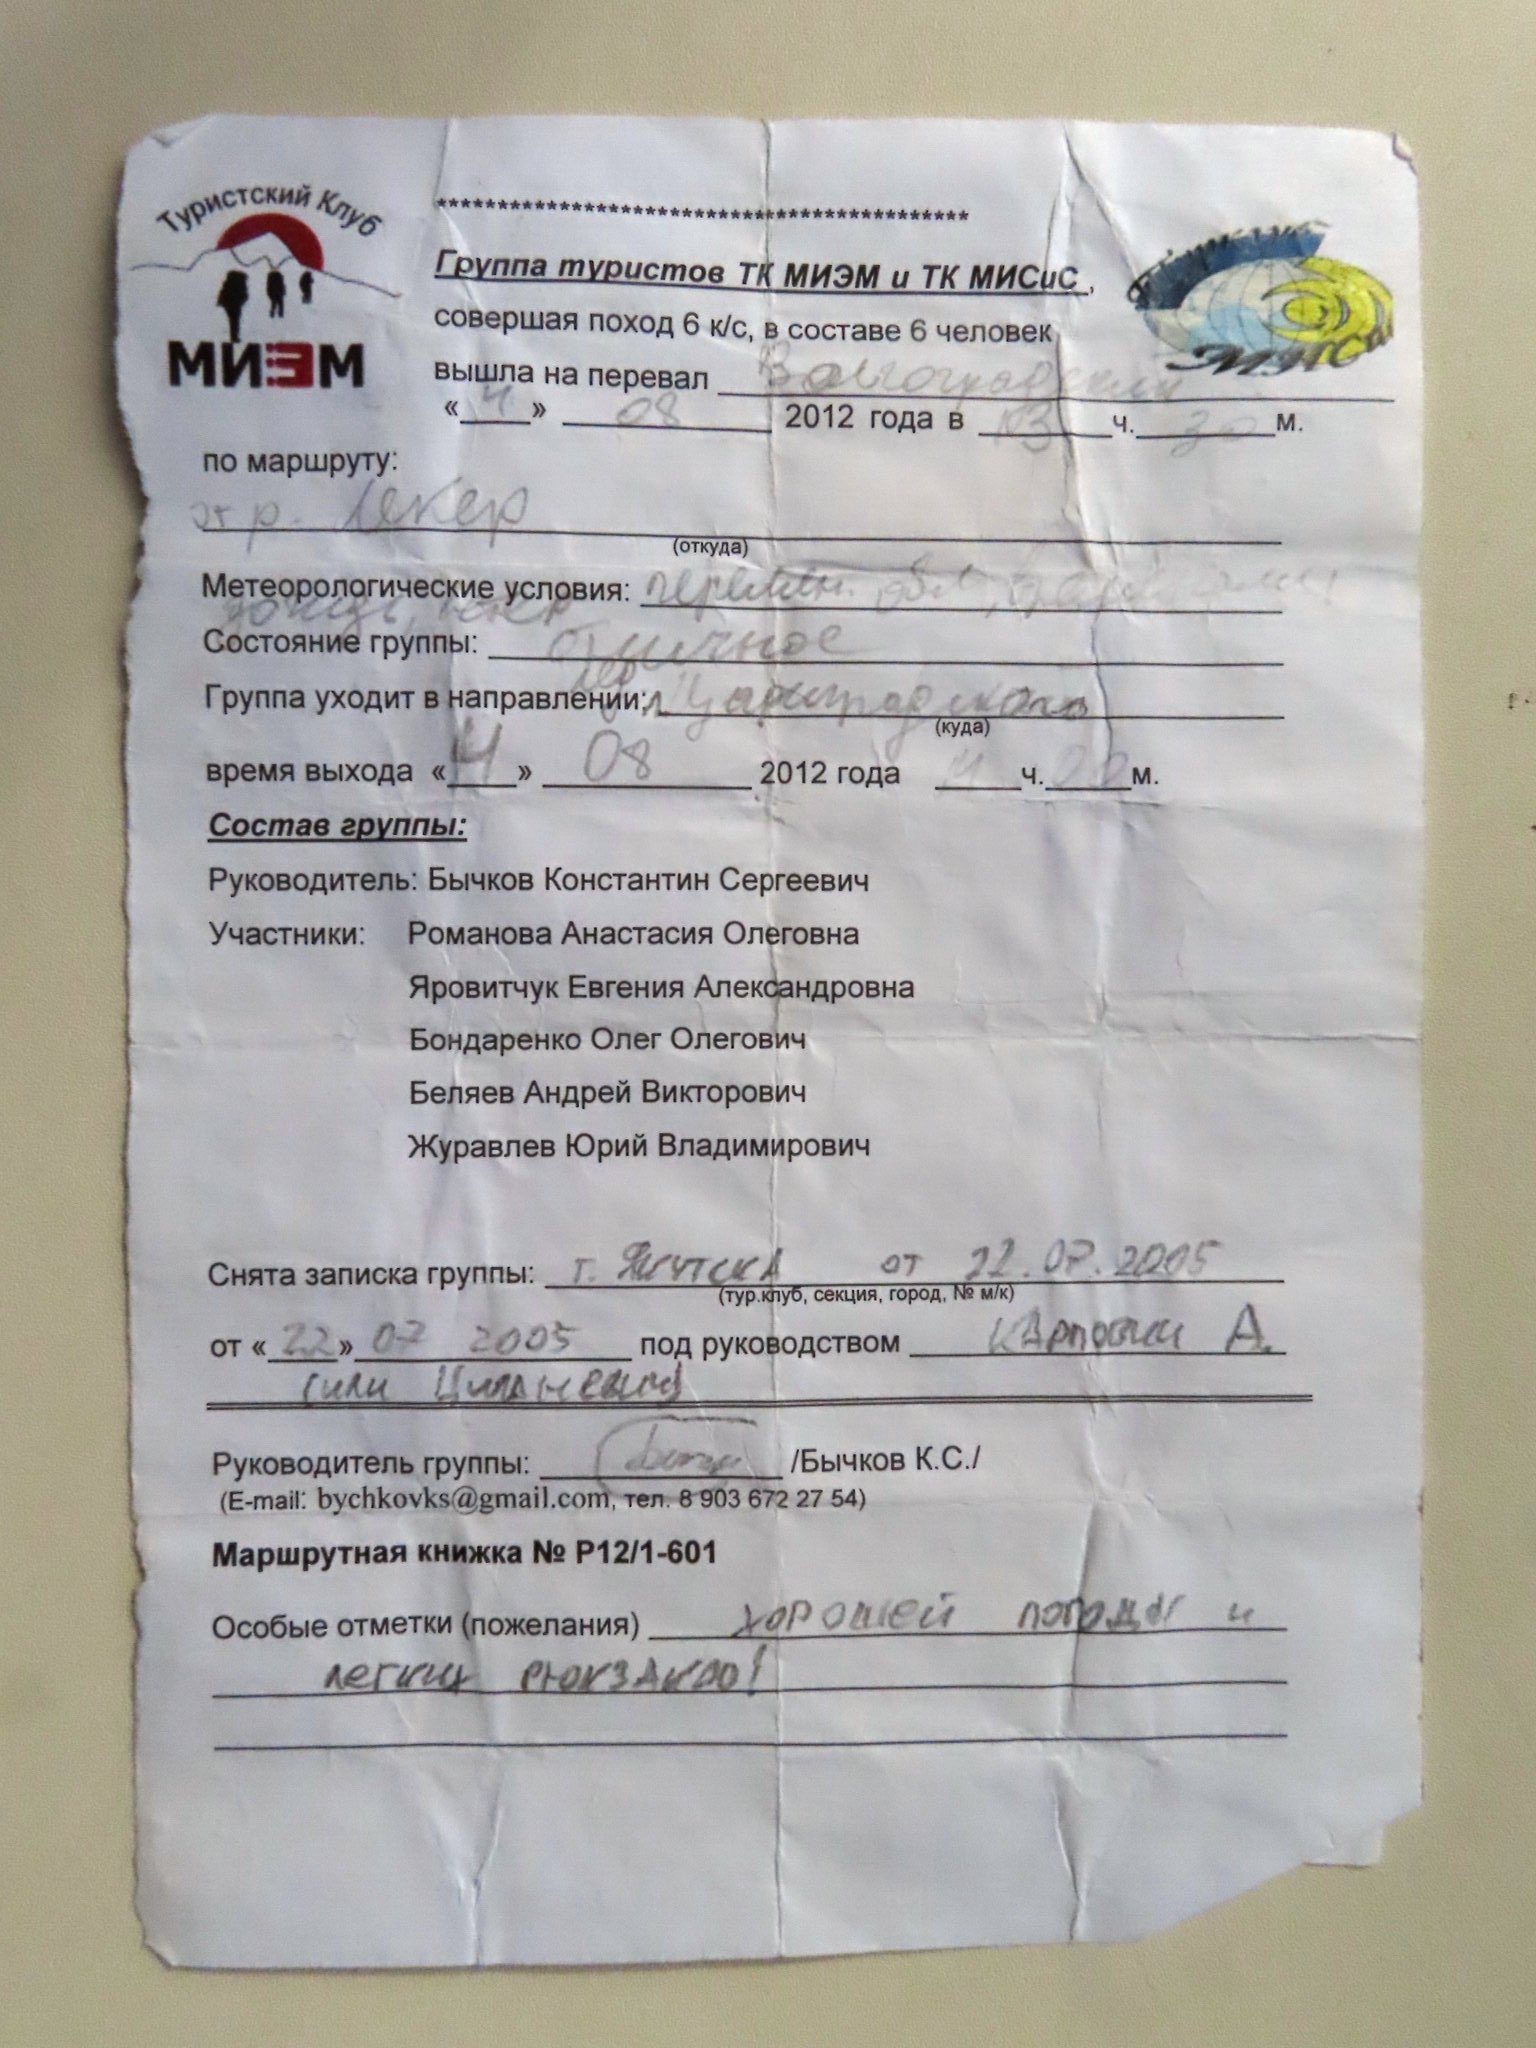 Туристский Клуб
МИЭМ
*******************************************
Группа туристов ТК МИЭМ и ТК МИСиС,
совершая поход 6 к/с, в составе 6 человек
вышла на перевал Волгоградский
«4» 08 2012 года в 13 ч. 30 м.
по маршруту:
от р.
(откуда)
Метеорологические условия: перемен. обл,
дождь,
Состояние группы: отличное
Группа уходит в направлении: Цариградского
(куда)
время выхода «4» 08 2012 года ч. 00 м.
Состав группы:
Руководитель: Бычков Константин Сергеевич
Участники: Романова Анастасия Олеговна
Яровитчук Евгения Александровна
Бондаренко Олег Олегович
Беляев Андрей Викторович
Журавлев Юрий Владимирович
Снята записка группы: г. Якутска от 22.07.2005
(тур.клуб, секция, город, № м/к)
от «22» 07 2005 под руководством А.
(или
Руководитель группы: /Бычков К.С./
(E-mail: bychkovks@gmail.com, тел. 8 903 672 27 54)
Маршрутная книжка № Р12/1-601
Особые отметки (пожелания) хорошей погоды и
легких рюкзаков!